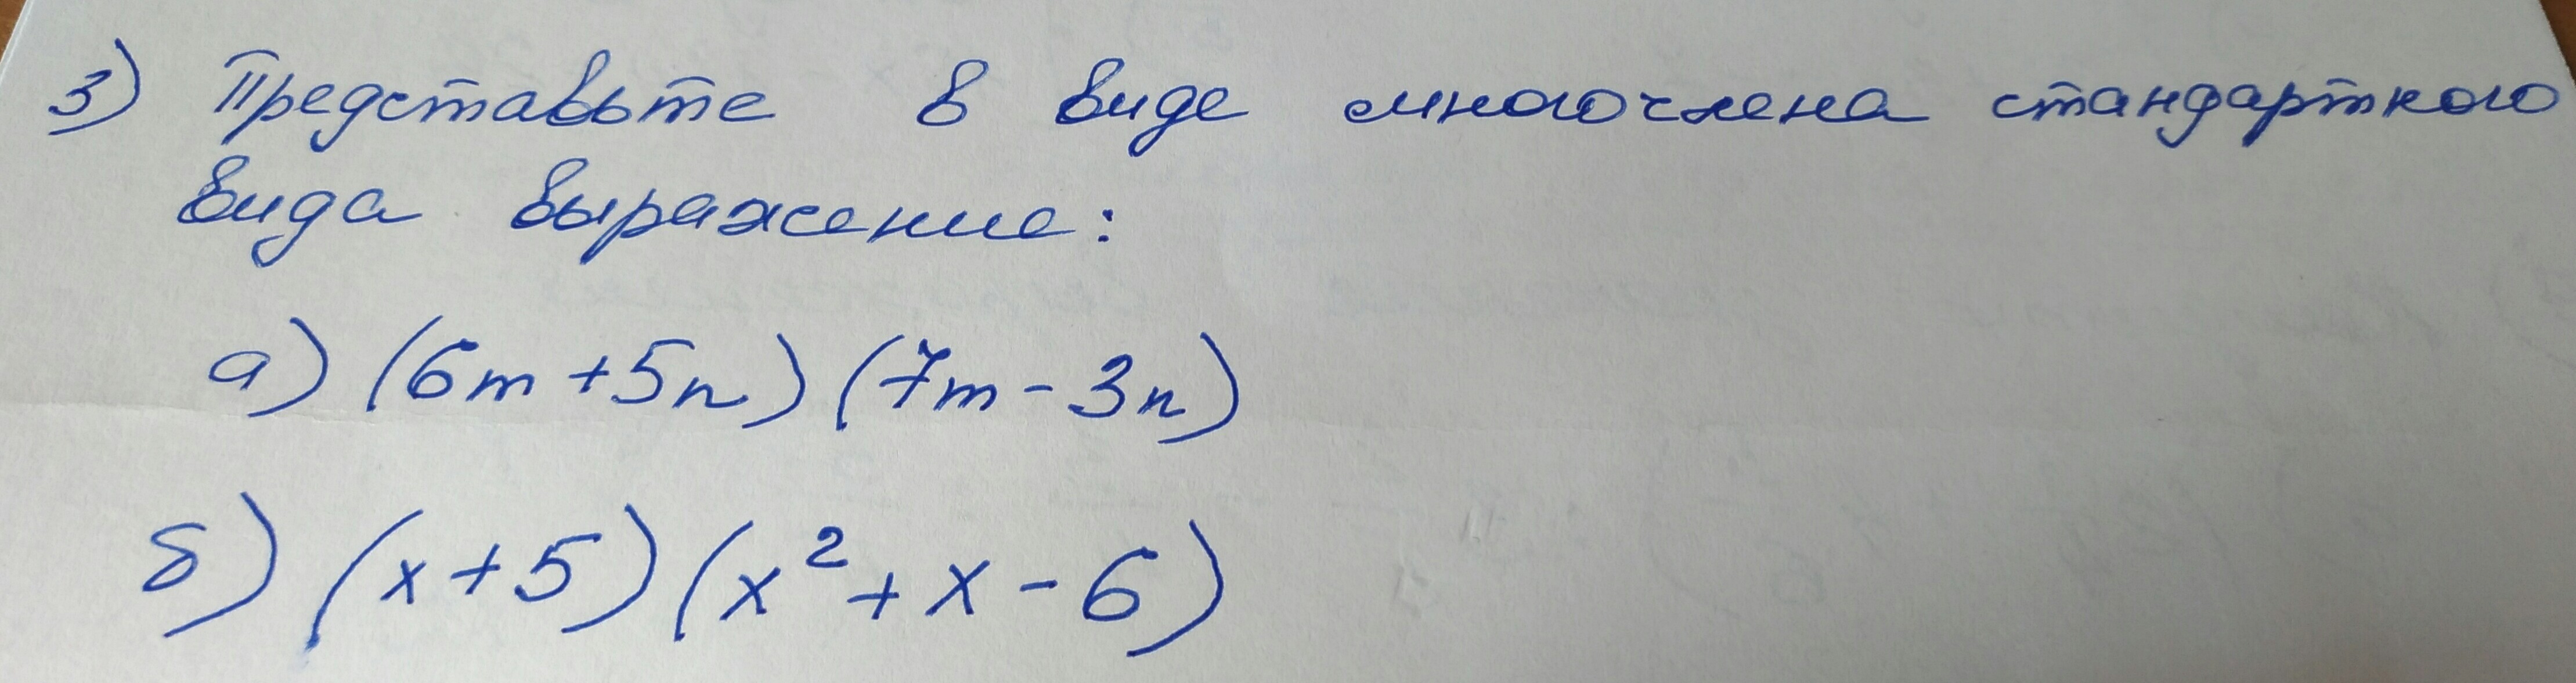 3) Представьте в виде многочлена стандартного
вида выражение:
а) (6m+5n)(7m-3n)
б) (x+5)(x²+x-6)